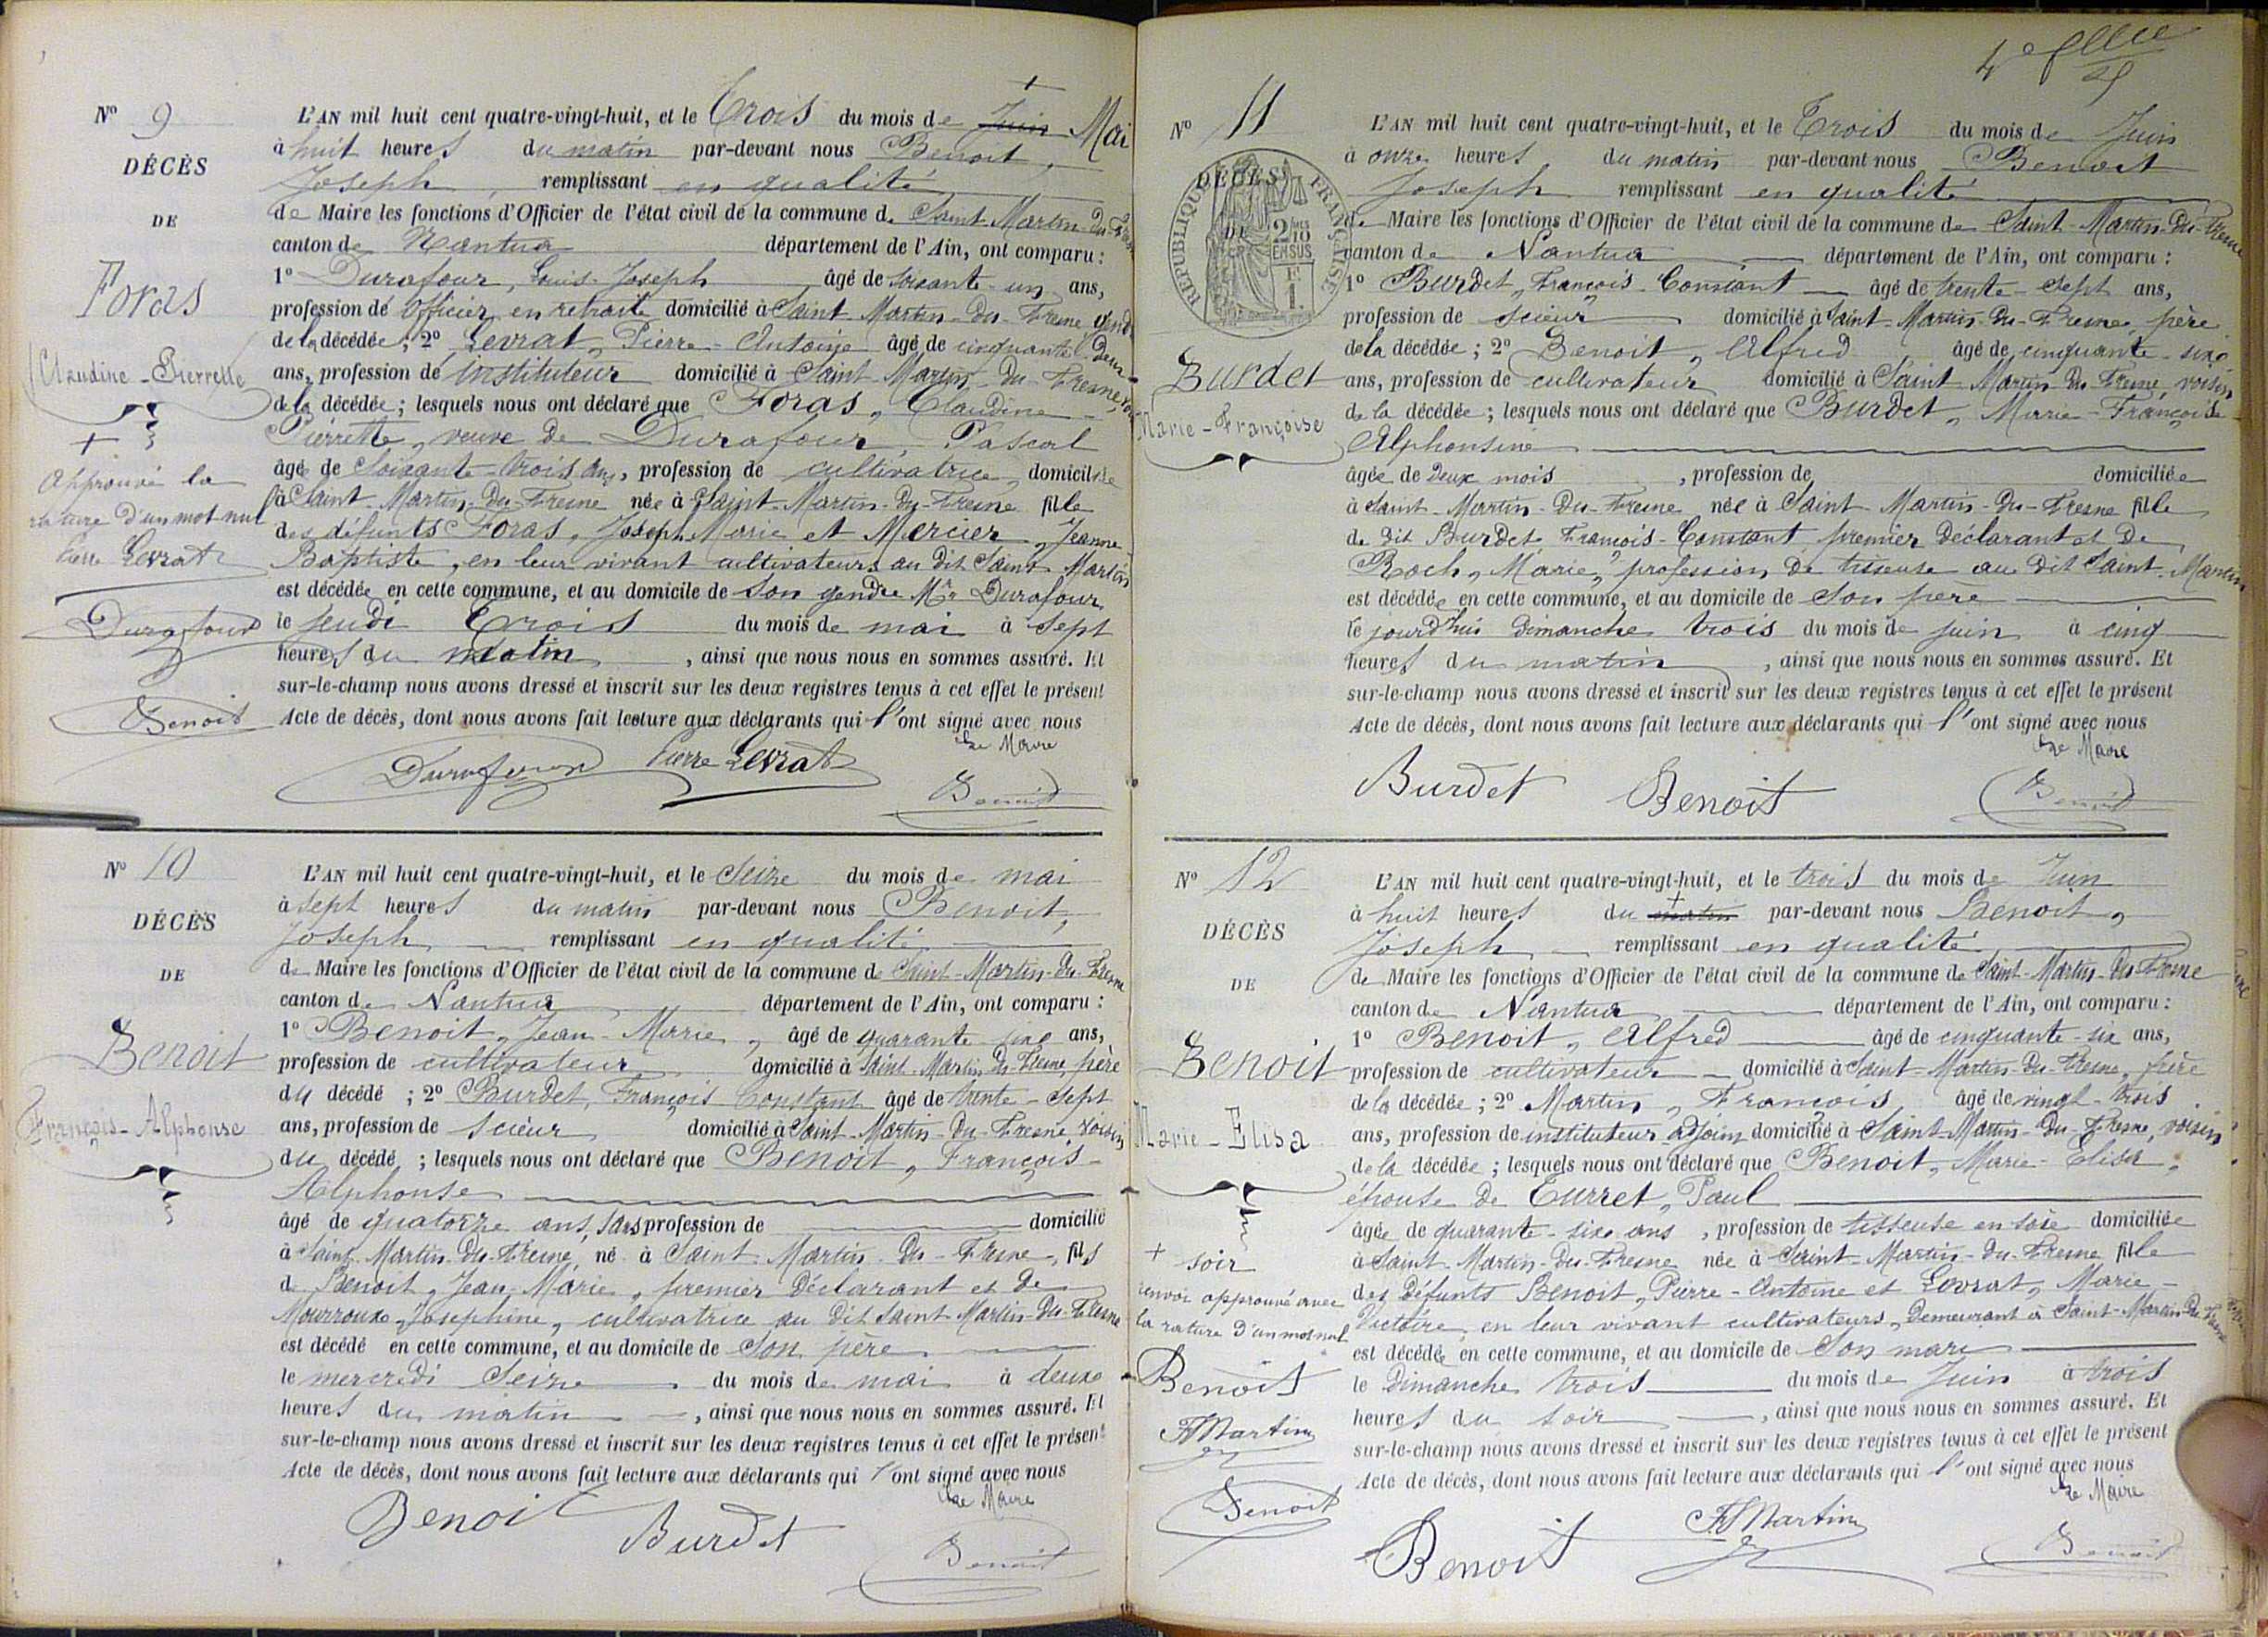 N° 9
DÉCÈS
DE
Foras
Claudine-Pierrette
+
Approuvé la
rature d'un mot nul
Pierre Levrat
Durafour
Benoit
+
L'AN mil huit cent quatre-vingt-huit, et le Trois du mois de Juin Mai
à huit heures du matin par-devant nous Benoit,
Joseph, remplissant en qualité
de Maire les fonctions d'Officier de l'état civil de la commune de Saint-Martin-du-Fresne
canton de Nantua département de l'Ain, ont comparu :
1° Durafour, Louis-Joseph âgé de soixante-un ans,
profession de officier en retraite domicilié à Saint-Martin-du-Fresne, gendre
de la décédée ; 2° Levrat, Pierre-Antoine âgé de cinquante-deux
ans, profession de instituteur domicilié à Saint-Martin-du-Fresne, voisin
de la décédée ; lesquels nous ont déclaré que Foras, Claudine-
Pierrette, veuve de Durafour, Pascal
âgée de soixante-trois ans, profession de cultivatrice, domiciliée
à Saint-Martin-du-Fresne née à Saint-Martin-du-Fresne fille
des défunts Foras, Joseph-Marie et Mercier, Jeanne-
Baptiste, en leur vivant cultivateurs au dit Saint-Martin
est décédée en cette commune, et au domicile de son gendre Mr Durafour
le jeudi trois du mois de mai à sept
heures du matin, ainsi que nous nous en sommes assuré. Et
sur-le-champ nous avons dressé et inscrit sur les deux registres tenus à cet effet le présent
Acte de décès, dont nous avons fait lecture aux déclarants qui l'ont signé avec nous
Le Maire
Durafour Pierre Levrat Benoit
N° 10
DÉCÈS
DE
Benoit
François-Alphonse
L'AN mil huit cent quatre-vingt-huit, et le seize du mois de mai
à sept heures du matin par-devant nous Benoit,
Joseph, remplissant en qualité
de Maire les fonctions d'Officier de l'état civil de la commune de Saint-Martin-du-Fresne
canton de Nantua département de l'Ain, ont comparu :
1° Benoit, Jean-Marie, âgé de quarante-six ans,
profession de cultivateur domicilié à Saint-Martin-du-Fresne, père
du décédé ; 2° Burdet, François Constant âgé de trente-sept
ans, profession de scieur domicilié à Saint-Martin-du-Fresne, voisin
du décédé ; lesquels nous ont déclaré que Benoit, François-
Alphonse
âgé de quatorze ans, sans profession de domicilié
à Saint-Martin-du-Fresne, né à Saint-Martin-du-Fresne, fils
de Benoit, Jean-Marie, premier déclarant et de
Mourroux, Josephine, cultivatrice au dit Saint-Martin-du-Fresne
est décédé en cette commune, et au domicile de son père
le mercredi seize du mois de mai à deux
heures du matin, ainsi que nous nous en sommes assuré. Et
sur-le-champ nous avons dressé et inscrit sur les deux registres tenus à cet effet le présent
Acte de décès, dont nous avons fait lecture aux déclarants qui l'ont signé avec nous
Le Maire
Benoit Burdet Benoit
N° 11
DÉCÈS
DE
RÉPUBLIQUE FRANÇAISE
2/10 EN SUS
Burdet
Marie-Françoise
L'AN mil huit cent quatre-vingt-huit, et le Trois du mois de Juin
à onze heures du matin par-devant nous Benoit
Joseph remplissant en qualité
de Maire les fonctions d'Officier de l'état civil de la commune de Saint-Martin-du-Fresne
canton de Nantua département de l'Ain, ont comparu :
1° Burdet, François-Constant âgé de trente-sept ans,
profession de scieur domicilié à Saint-Martin-du-Fresne, père
de la décédée ; 2° Benoit, Alfred âgé de cinquante-six
ans, profession de cultivateur domicilié à Saint-Martin-du-Fresne, voisin
de la décédée ; lesquels nous ont déclaré que Burdet, Marie-Françoise-
Alphonsine
âgée de deux mois, profession de domiciliée
à Saint-Martin-du-Fresne née à Saint-Martin-du-Fresne fille
de dit Burdet, François-Constant, premier déclarant et de
Roch, Marie, profession de tisseuse au dit Saint-Martin
est décédée en cette commune, et au domicile de son père
le jourd'hui dimanche trois du mois de juin à cinq
heures du matin, ainsi que nous nous en sommes assuré. Et
sur-le-champ nous avons dressé et inscrit sur les deux registres tenus à cet effet le présent
Acte de décès, dont nous avons fait lecture aux déclarants qui l'ont signé avec nous
Le Maire
Burdet Benoit Benoit
N° 12
DÉCÈS
DE
Benoit
Marie-Elisa
+
soir
renvoi approuvé avec
la rature d'un mot nul
Benoit
F Martin
Benoit
L'AN mil huit cent quatre-vingt-huit, et le trois du mois de Juin
à huit heures du matin + par-devant nous Benoit,
Joseph, remplissant en qualité
de Maire les fonctions d'Officier de l'état civil de la commune de Saint-Martin-du-Fresne
canton de Nantua département de l'Ain, ont comparu :
1° Benoit, Alfred âgé de cinquante-six ans,
profession de cultivateur domicilié à Saint-Martin-du-Fresne, frère
de la décédée ; 2° Martin, François, âgé de vingt-trois
ans, profession de instituteur adjoint domicilié à Saint-Martin-du-Fresne, voisin
de la décédée ; lesquels nous ont déclaré que Benoit, Marie-Elisa,
épouse de Turret, Paul
âgée de quarante-six ans, profession de tisseuse en soie domiciliée
à Saint-Martin-du-Fresne née à Saint-Martin-du-Fresne fille
des défunts Benoit, Pierre-Antoine et Levrat, Marie-
Victoire, en leur vivant cultivateurs, demeurant à Saint-Martin-du-Fresne
est décédée en cette commune, et au domicile de son mari
le dimanche trois du mois de Juin à trois
heures du soir, ainsi que nous nous en sommes assuré. Et
sur-le-champ nous avons dressé et inscrit sur les deux registres tenus à cet effet le présent
Acte de décès, dont nous avons fait lecture aux déclarants qui l'ont signé avec nous
Le Maire
Benoit F Martin Benoit